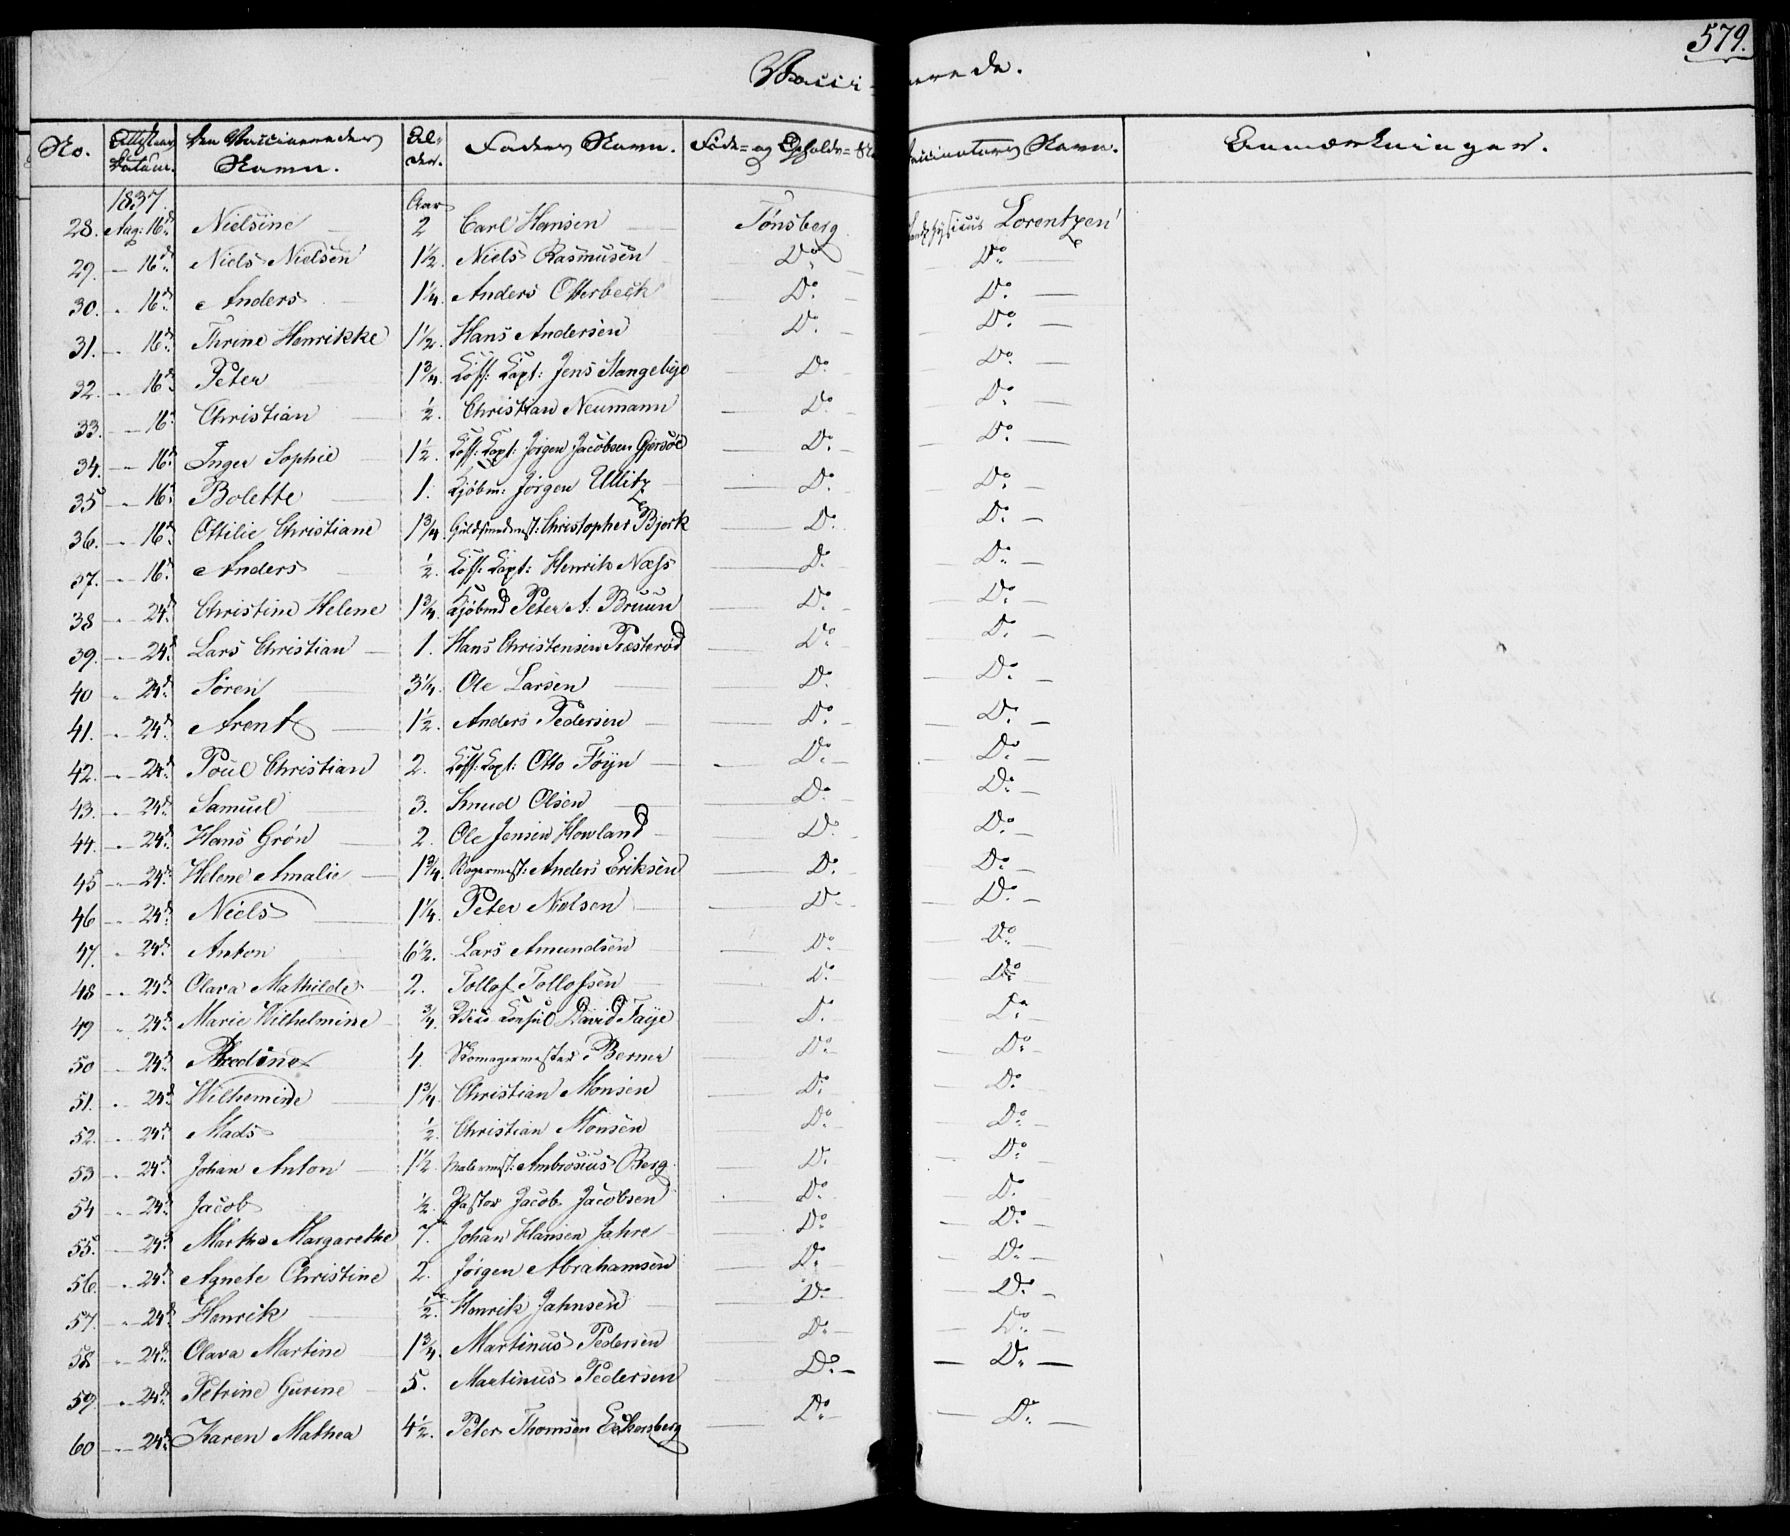 579.
Vacci- nerede.
No. Attestens Datum. Den Vaccineredes Navn. Al- der. Faders Navn. Føde- og Opholds- St Vaccinators Navn. Anmærkninger.
1837. Aar
28. Aug: 16d. Nielsine 2 Carl Hansen Tønsberg Landphysicus Lorentzen
29. — 16d. Niels Nielsen 1½. Niels Rasmusen Do. Do.
30. - 16d. Anders 1¼. Anders Otterbeck Do. Do.
31. — 16d. Thrine Henrikke 1½. Hans Andersen Do. Do.
32. — 16d. Peter 1¾. Koff: Kapt: Jens Stangebye Do. Do.
33. — 16d Christian ½. Christian Neumann Do. Do.
34. — 16d. Inger Sophie 1½. Koff: Kapt: Jørgen Jacobsen Gjersøe Do. Do.
35 — 16d. Bolette 1. Kjøbm: Jørgen Ullitz Do. Do.
36. — 16d. Ottilie Christiane 1¾. Guldsmedmst: Christopher Bjørk Do. Do.
37. — 16d. Anders ½. Koff: Kapt: Henrik Næss Do. Do.
38 — 24d. Christine Helene 1¾. Kjøbmd Peter A: Bruun Do. Do.
39. — 24d. Lars Christian 1. Hans Christensen Præsterød Do. Do.
40 - 24d. Søren 3¼. Ole Larsen Do. Do.
41. - 24d. Arent 1½. Anders Pedersen Do. Do.
42. — 24d. Poul Christian 2. Koff: Kapt: Otto Føyn Do. Do.
43. - 24d. Samuel 3. Knud Olsen Do. Do.
44. - 24d. Hans Grøn 2. Ole Jensen Howland Do. Do.
45 — 24d. Helene Amalie 1¾. Bagermest: Anders Eriksen Do. Do.
46 - 24d. Niels 1¼. Peter Nielsen Do. Do.
47. - 24d. Anton 6½. Lars Amundsen Do. Do.
48 - 24d. Olava Mathilde 2. Tollof Tollofsen Do. Do.
49 - 24d. Marie Wilhelmine ¾. Vice Konsul David Faye Do. Do.
50 24d. 4. Skomagermester Berner Do. Do.
51. - 24d. Wilhemine 1¾. Christian Monsen Do. Do.
52. - 24d. Mads ½. Christian Monsen Do. Do.
53 - 24d. Johan Anton 1½. Malermst: Ambrosius Berg Do. Do.
54 - 24d. Jacob ½. Pastor Jacob Jacobsen Do. Do.
55. - 24d. Martha Margarethe 7. Johan Hansen Jahre Do. Do.
56. - 24d. Agnete Christine 2. Jørgen Abrahamsen Do. Do.
57. - 24d. Henrik ½. Henrik Jahnsen Do. Do.
58 - 24d. Olava Martine 1¾. Martinus Pedersen Do. Do.
59. - 24d. Petrine Gurine 5. Martinus Pedersen Do. Do.
60 - 24d. Karen Mathea 4½. Peter Thomsen Eckersberg Do. Do.